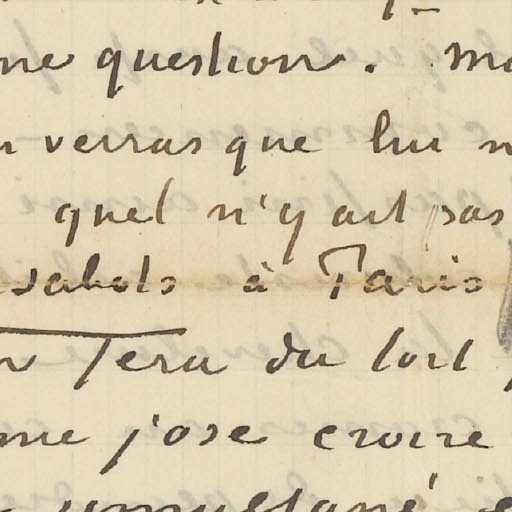 ne question. ma
verras que lui n
quel n'y ait pas
sabots à Paris
fera du tort
me j'ose croire